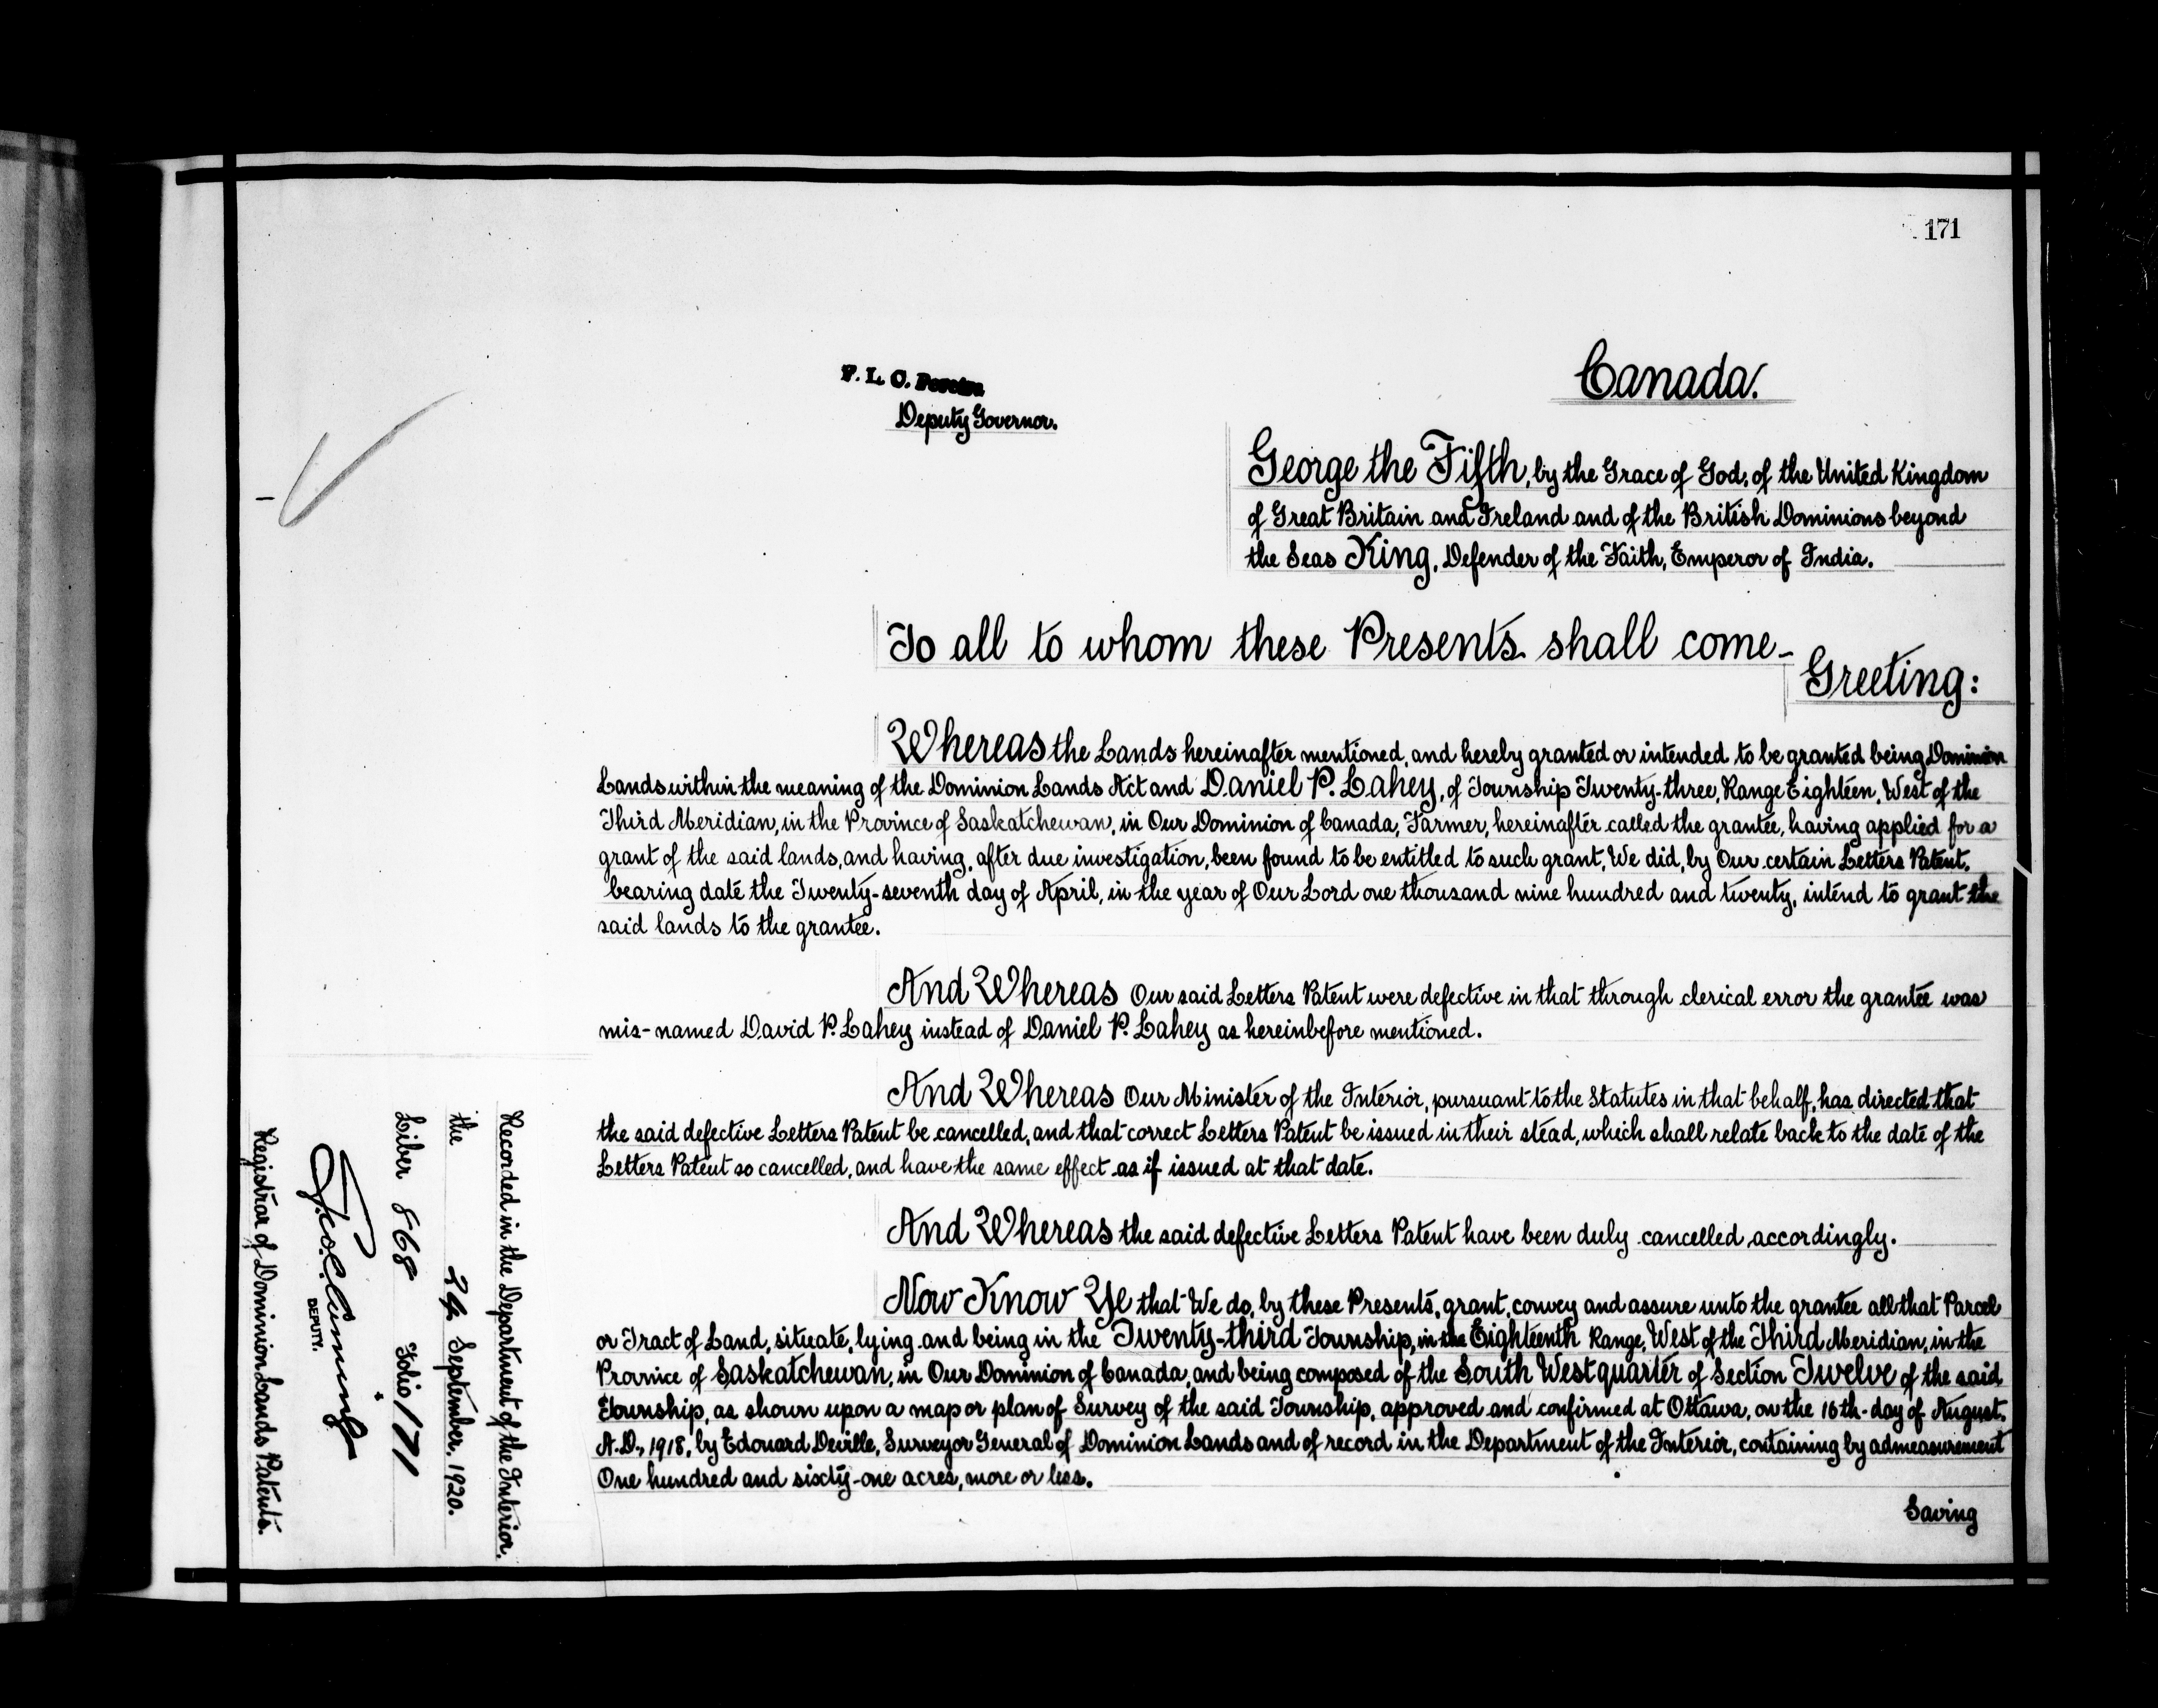 171
Canada.
F. L. C. Pereira
Deputy Governor.
George the Fifth, by the Grace of God, of the United Kingdom
of Great Britain and Ireland and of the British Dominions beyond
the Seas King, Defender of the Faith, Emperor of India.
To all to whom these Presents shall come—
Greeting:
Whereas the Lands hereinafter mentioned, and hereby granted or intended to be granted being Dominion
Lands within the meaning of the Dominion Lands Act and Daniel P. Lahey, of Township Twenty-three, Range Eighteen, West of the
Third Meridian, in the Province of Saskatchewan, in Our Dominion of Canada, Farmer, hereinafter called the grantee, having applied for a
grant of the said lands, and having, after due investigation, been found to be entitled to such grant, We did, by Our certain Letters Patent,
bearing date the Twenty-seventh day of April, in the year of Our Lord one thousand nine hundred and twenty, intend to grant the
said lands to the grantee.
And Whereas Our said Letters Patent were defective in that through clerical error the grantee was
mis-named David P. Lahey instead of Daniel P. Lahey as hereinbefore mentioned.
And Whereas Our Minister of the Interior, pursuant to the Statutes in that behalf, has directed that
the said defective Letters Patent be cancelled, and that correct Letters Patent be issued in their stead, which shall relate back to the date of the
Letters Patent so cancelled, and have the same effect as if issued at that date.
And Whereas the said defective Letters Patent have been duly cancelled accordingly.
Now Know Ye that We do, by these Presents, grant, convey and assure unto the grantee all that Parcel
or Tract of Land, situate, lying and being in the Twenty-third Township, in the Eighteenth Range, West of the Third Meridian, in the
Province of Saskatchewan, in Our Dominion of Canada, and being composed of the South West quarter of Section Twelve of the said
Township, as shown upon a map or plan of Survey of the said Township, approved and confirmed at Ottawa, on the 16th day of August,
A.D., 1918, by Edouard Deville, Surveyor General of Dominion Lands and of record in the Department of the Interior, containing by admeasurement
One hundred and sixty-one acres, more or less.
Saving
Recorded in the Department of the Interior,
the 24 September, 1920.
Liber 868 Folio 171
DEPUTY.
Registrar of Dominion Lands Patents.